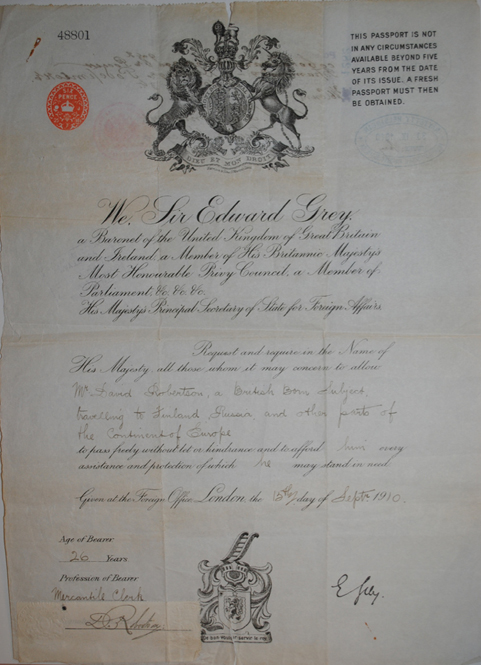 48801
SIX PENCE
DIEU ET MON DROIT
THIS PASSPORT IS NOT
IN ANY CIRCUMSTANCES
AVAILABLE BEYOND FIVE
YEARS FROM THE DATE
OF ITS ISSUE. A FRESH
PASSPORT MUST THEN
BE OBTAINED.
We, Sir Edward Grey,
a Baronet of the United Kingdom of Great Britain
and Ireland, a Member of His Britannic Majesty's
Most Honourable Privy Council, a Member of
Parliament, &c. &c. &c.
His Majesty's Principal Secretary of State for Foreign Affairs
Request and require in the Name of
His Majesty, all those whom it may concern to allow
Mr David Robertson, a British Born Subject,
travelling to Finland Russia and other parts of
the Continent of Europe
to pass freely without let or hindrance and to afford him every
assistance and protection of which he may stand in need.
Given at the Foreign Office, London, the 15th day of Septr 1910.
Age of Bearer
26 Years
Profession of Bearer
Mercantile Clerk
D. Robertson
E Grey.